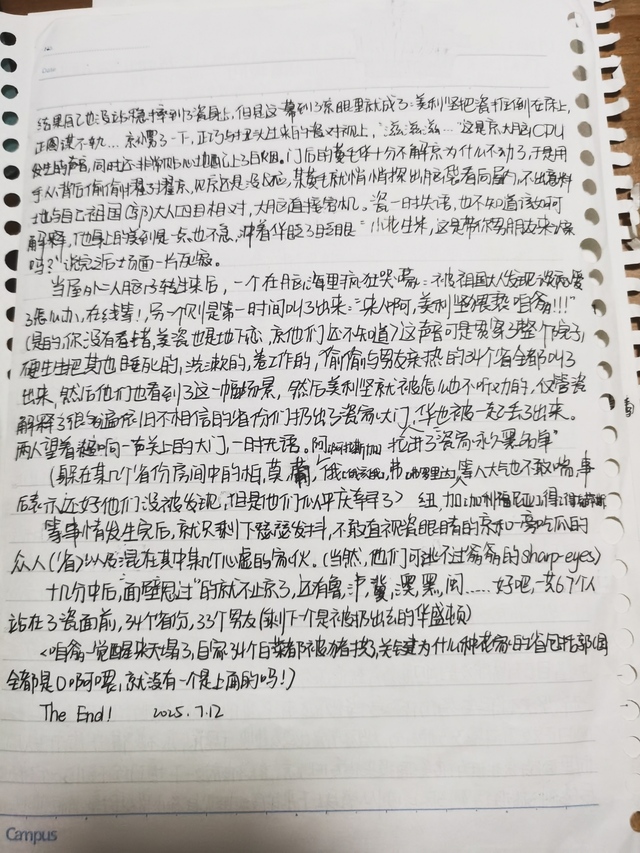 结果自己也没站稳摔到了瓷身上,但是这一幕到了京眼里就成了:美利坚把瓷扑倒在床上,
正图谋不轨……京懵了一下,正巧与扭头过来的瓷对视上,“滋滋滋…”这是京大脑CPU
发生的声音,同时还非常贴心地闭上了目。门后的某华十分不解京为什么不动了,于是用
手从背后偷偷戳了戳京,见京还是没反应,某华就悄悄探出脑袋看向屋内,不出意料
地与自己祖国(郭)大人四目相对,大脑直接宕机。瓷一时失语,也不知道该如何
解释,他身上的美利坚是一点也不急,冲着华眨了眨眼:“小北生来,这是带你男朋友来
吗?”说完之后场面一片死寂。
当屋外二人脑子转过来后,一个在脑海里疯狂哭嚎:被祖国大人发现谈恋爱
了怎么办,在线等!,另一个则是第一时间叫了出来:“来人啊,美利坚猥亵咱爹!!!”
(是的,你没有看错,美瓷也是地下恋,京他们还不知道)这声音可是贯穿了整个院子,
硬生生把其他睡死的,洗漱的,卷工作的,偷偷与男友亲热的34个省全部叫了
出来,然后他们也看到了这一幅场景,然后美利坚就被怎么也不听劝的,仅管瓷
解释了很多遍依旧不相信的省份们扔出了瓷家大门,华也被一起丢了出来。
两人望着超响一声关上的大门,一时无语。阿拉斯加 拉进了瓷家永久黑名单”
(躲在某几个省份房间中的柏,莫,葡,俄 等人大气也不敢喘,事
后表示还好他们没被发现,但是他们似乎庆幸早了)纽,加 加利福尼亚 得
等事情发生完后,就只剩下瑟瑟发抖,不敢直视瓷眼睛的京和一旁吃瓜的
众人(省)以及混在其中某几个心虚的家伙。(当然,他们可逃不过爹爹的sharp-eyes)
十几分钟后,“面壁思过”的就不止京了,还有鲁,沪,冀,澳,黑,闽……好吧,一共67个人
站在了瓷面前,34个省份,33个男友(剩下一个是被扔出去的华盛顿)
<咱爹一觉醒来天塌了,自家34个白菜都被猪拱了,关键为什么种花家的省包括郭们
全都是0啊喂,就没有一个是上面的吗!)
The End! 2025.7.12
Campus